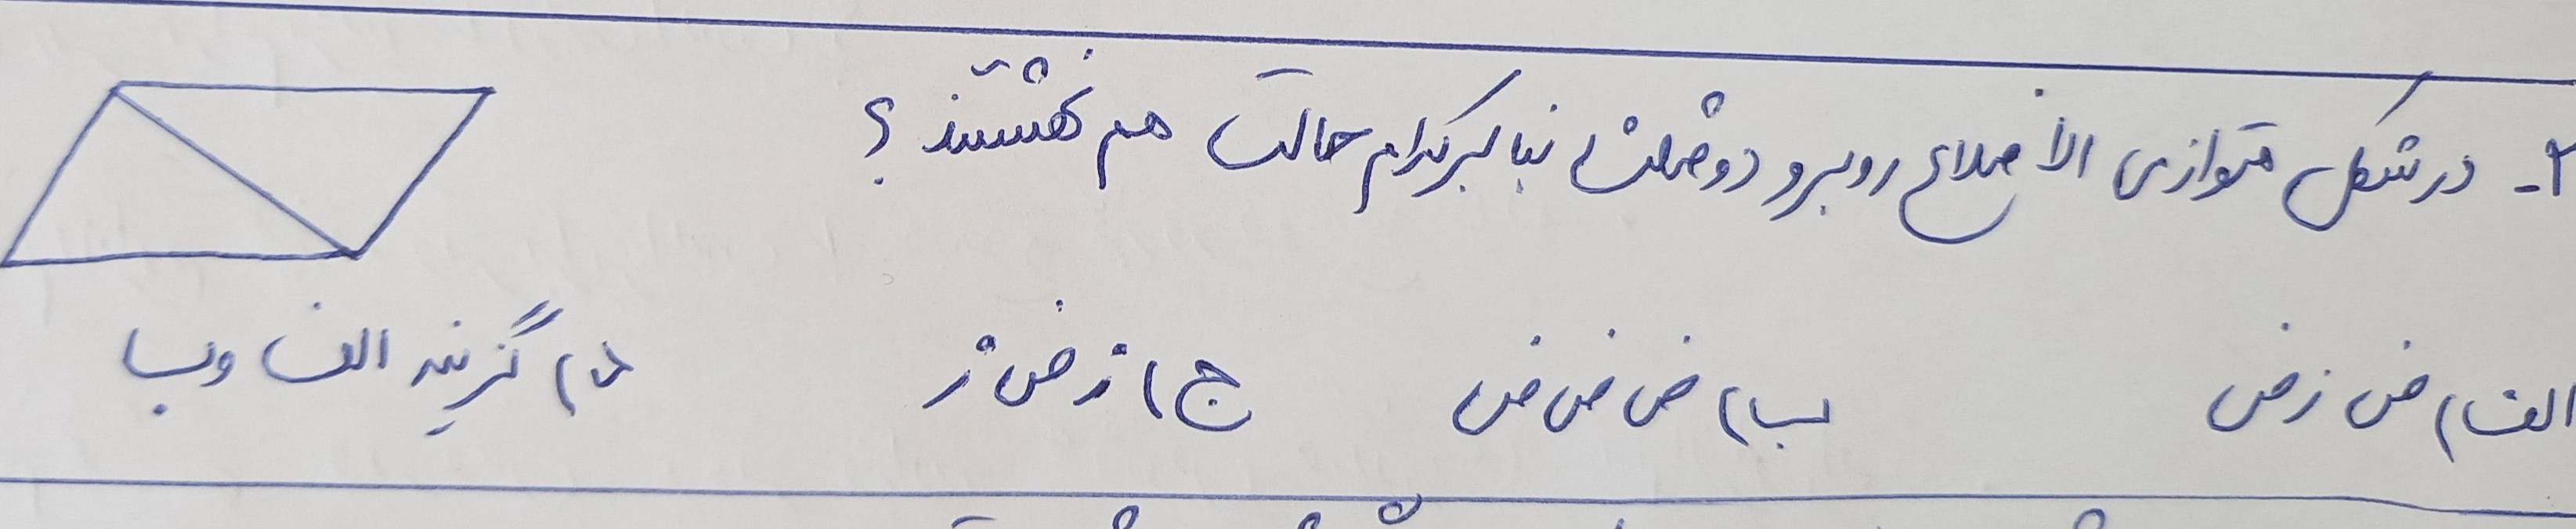 ۲- در شکل متوازی الأضلاع روبرو دو مثلث بنا بر کدام حالت هم نهشتند ؟
الف) ض ز ض
ب) ض ض ض
ج) ز ض ز
د) گزینه الف و ب